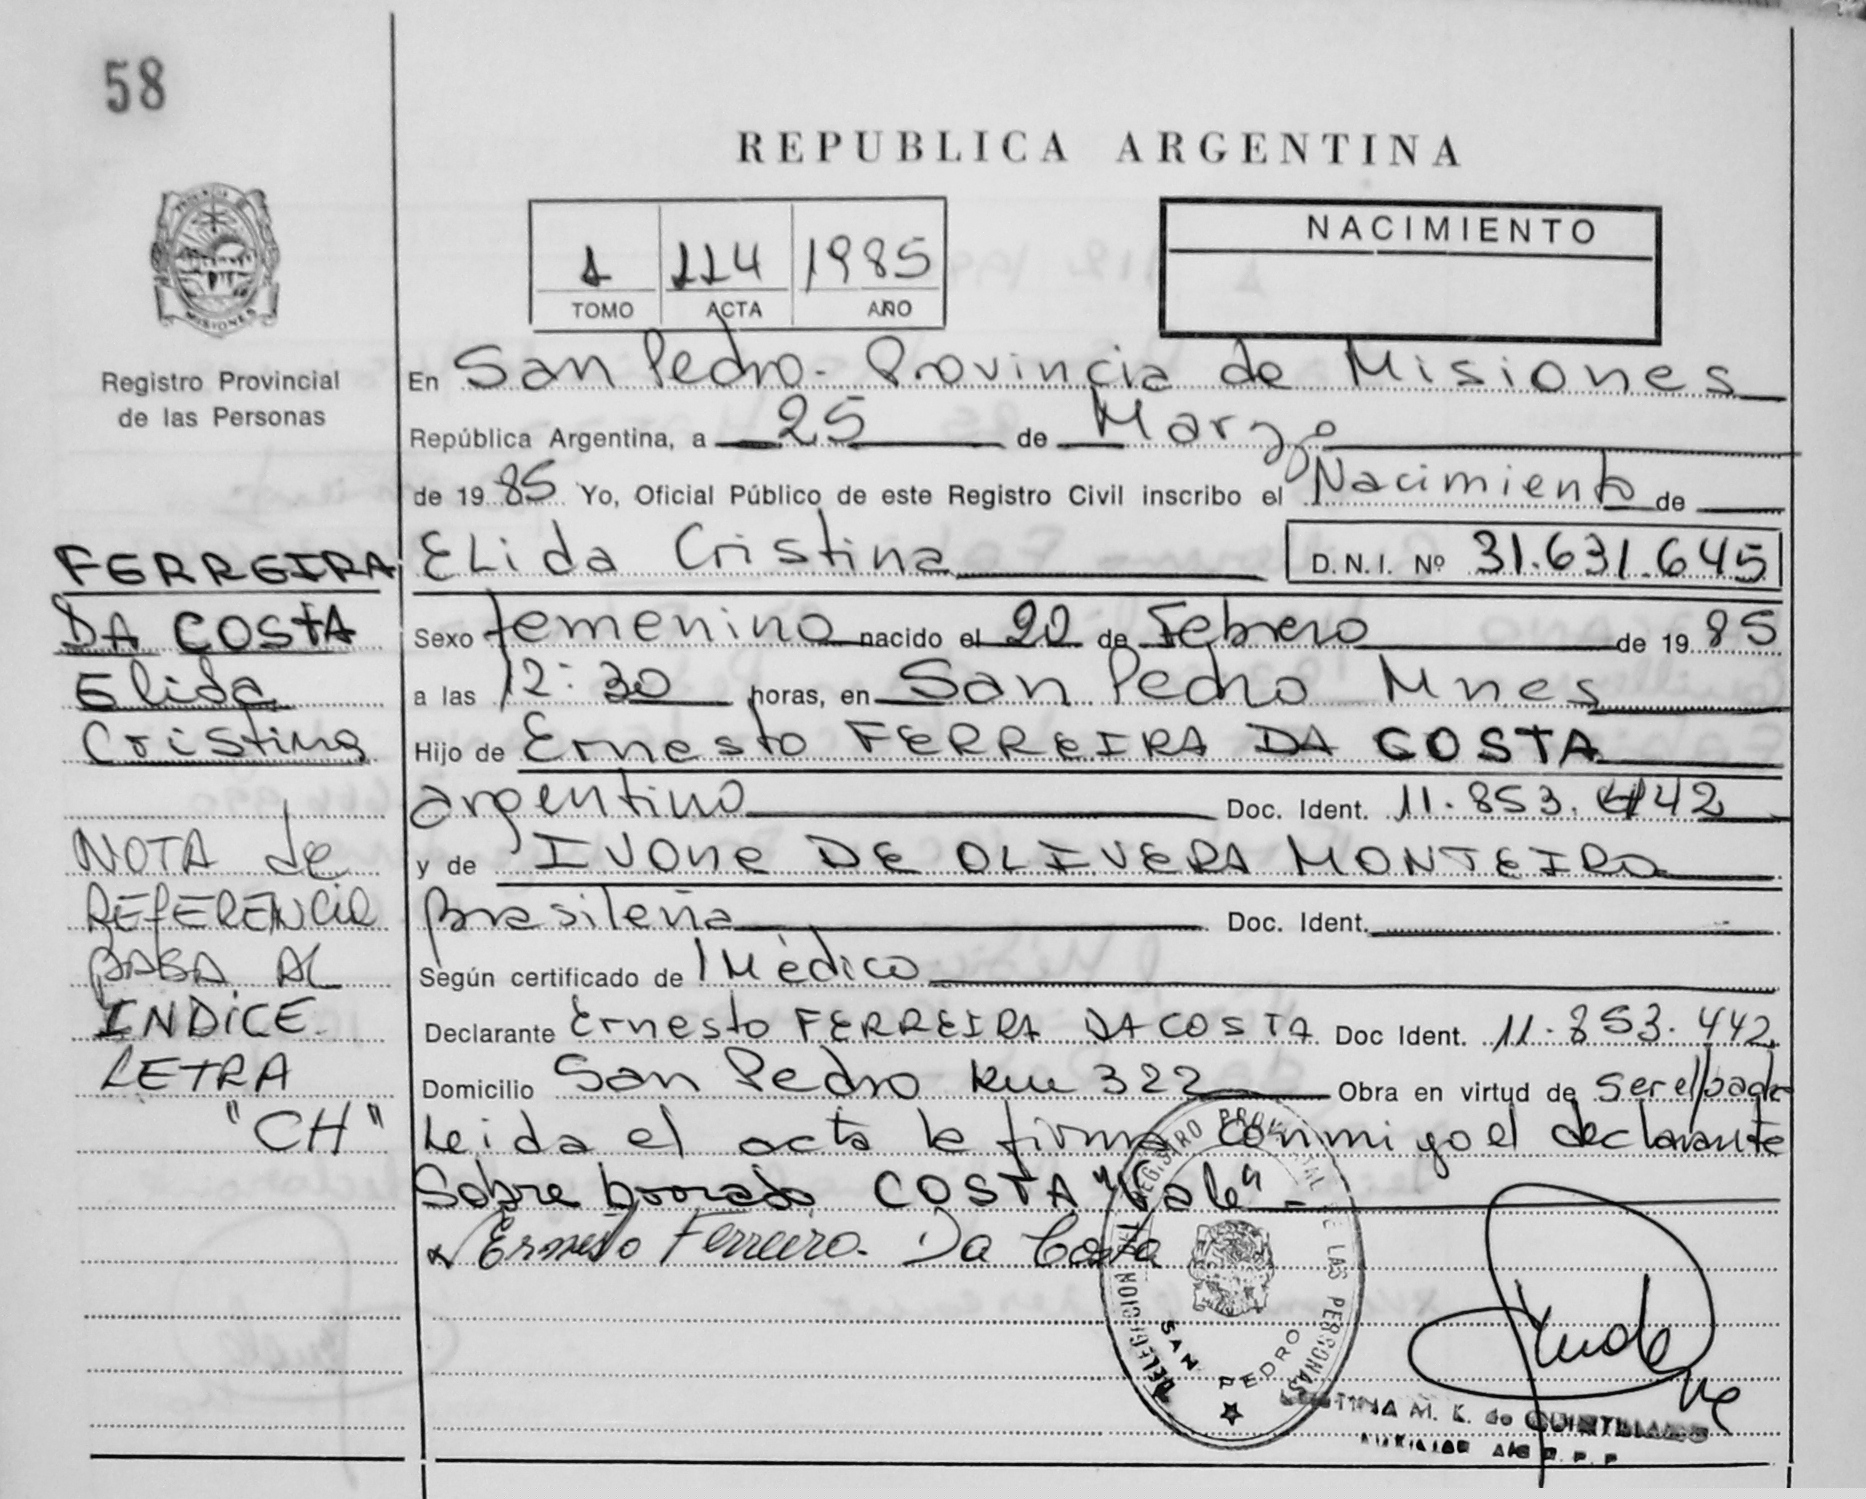 58
REPUBLICA ARGENTINA
1 114 1985
TOMO ACTA AÑO
NACIMIENTO
PROVINCIA DE
MISIONES
Registro Provincial
de las Personas
En San Pedro - Provincia de Misiones
República Argentina, a 25 de Marzo
de 1985 Yo, Oficial Público de este Registro Civil inscribo el Nacimiento de
FERREIRA
DA COSTA
Elida
Cristina
Elida Cristina D.N.I. Nº 31.631.645
Sexo femenino nacido el 20 de Febrero de 1985
a las 12:30 horas, en San Pedro Mnes
Hijo de Ernesto FERREIRA DA COSTA
argentino Doc. Ident. 11.853.442
y de IVONE DE OLIVERA MONTEIRO
Brasileña Doc. Ident.
Según certificado de Médico
Declarante Ernesto FERREIRA DA COSTA Doc Ident. 11.853.442
Domicilio San Pedro Km 322 Obra en virtud de ser el padre
Leida el acta la firma conmigo el declarante
Sobre borrado COSTA "Vale" -
Ernesto Ferreira Da Costa
NOTA de
REFERENCIA
PASA AL
INDICE
LETRA
"CH"
REGISTRO PROVINCIAL DE LAS PERSONAS
DELEGACION
SAN PEDRO
M. K. de QUINTILIANO
AUXILIAR